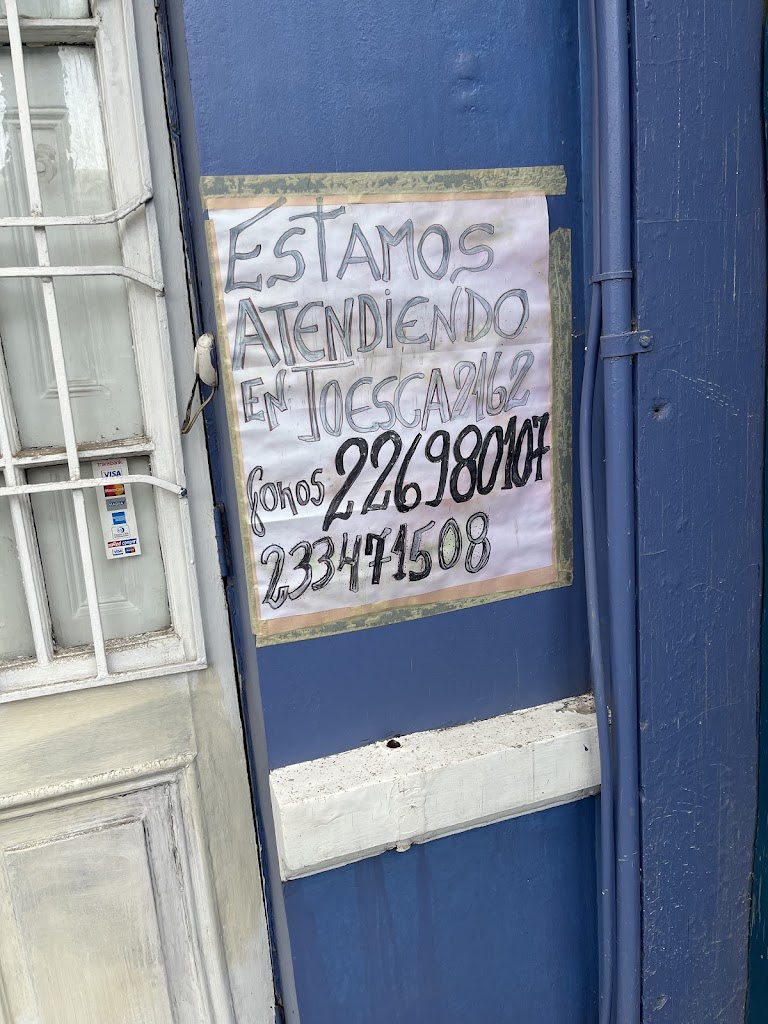 ESTAMOS
ATENDIENDO
EN TOESCA 2162
fonos 226980107
233471508
transbank
VISA
MasterCard